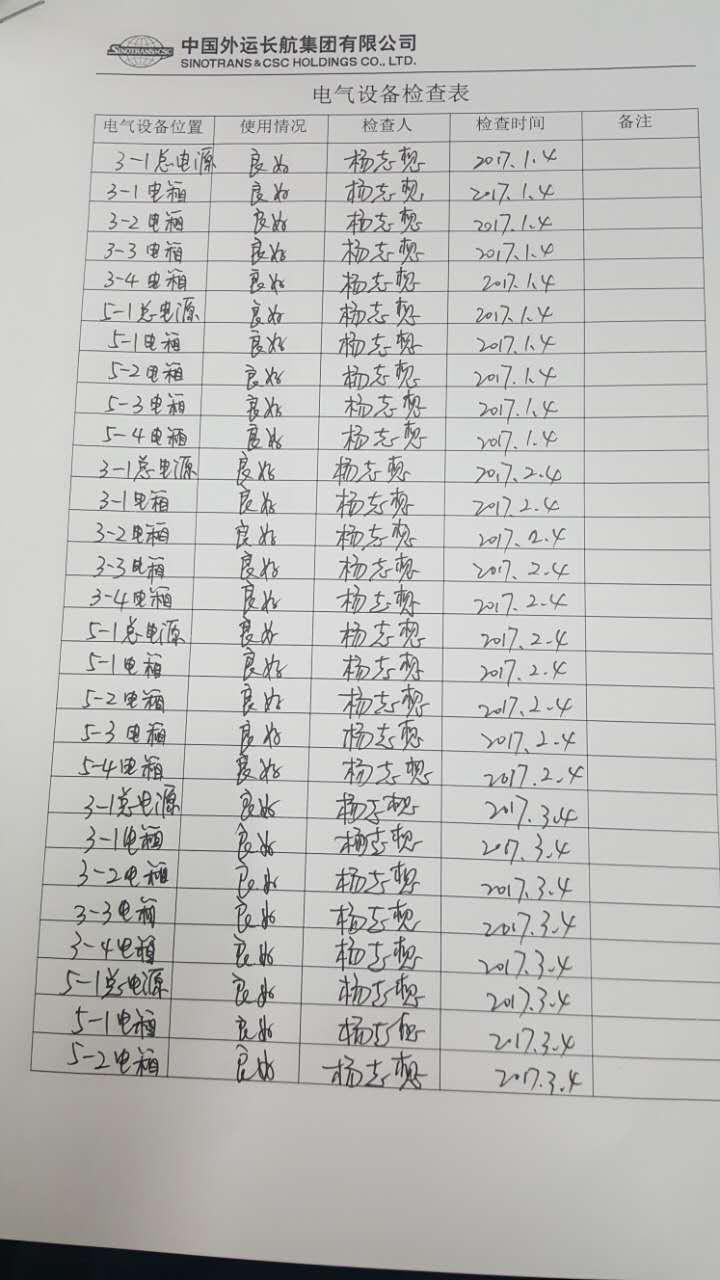 中国外运长航集团有限公司
SINOTRANS & CSC HOLDINGS CO., LTD.
SINOTRANS&CSC
电气设备检查表
电气设备位置 使用情况 检查人 检查时间 备注
3-1总电源 良好 杨志想 2017.1.4
3-1电箱 良好 杨志想 2017.1.4
3-2电箱 良好 杨志想 2017.1.4
3-3电箱 良好 杨志想 2017.1.4
3-4电箱 良好 杨志想 2017.1.4
5-1总电源 良好 杨志想 2017.1.4
5-1电箱 良好 杨志想 2017.1.4
5-2电箱 良好 杨志想 2017.1.4
5-3电箱 良好 杨志想 2017.1.4
5-4电箱 良好 杨志想 2017.1.4
3-1总电源 良好 杨志想 2017.2.4
3-1电箱 良好 杨志想 2017.2.4
3-2电箱 良好 杨志想 2017.2.4
3-3电箱 良好 杨志想 2017.2.4
3-4电箱 良好 杨志想 2017.2.4
5-1总电源 良好 杨志想 2017.2.4
5-1电箱 良好 杨志想 2017.2.4
5-2电箱 良好 杨志想 2017.2.4
5-3电箱 良好 杨志想 2017.2.4
5-4电箱 良好 杨志想 2017.2.4
3-1总电源 良好 杨志想 2017.3.4
3-1电箱 良好 杨志想 2017.3.4
3-2电箱 良好 杨志想 2017.3.4
3-3电箱 良好 杨志想 2017.3.4
3-4电箱 良好 杨志想 2017.3.4
5-1总电源 良好 杨志想 2017.3.4
5-1电箱 良好 杨志想 2017.3.4
5-2电箱 良好 杨志想 2017.3.4